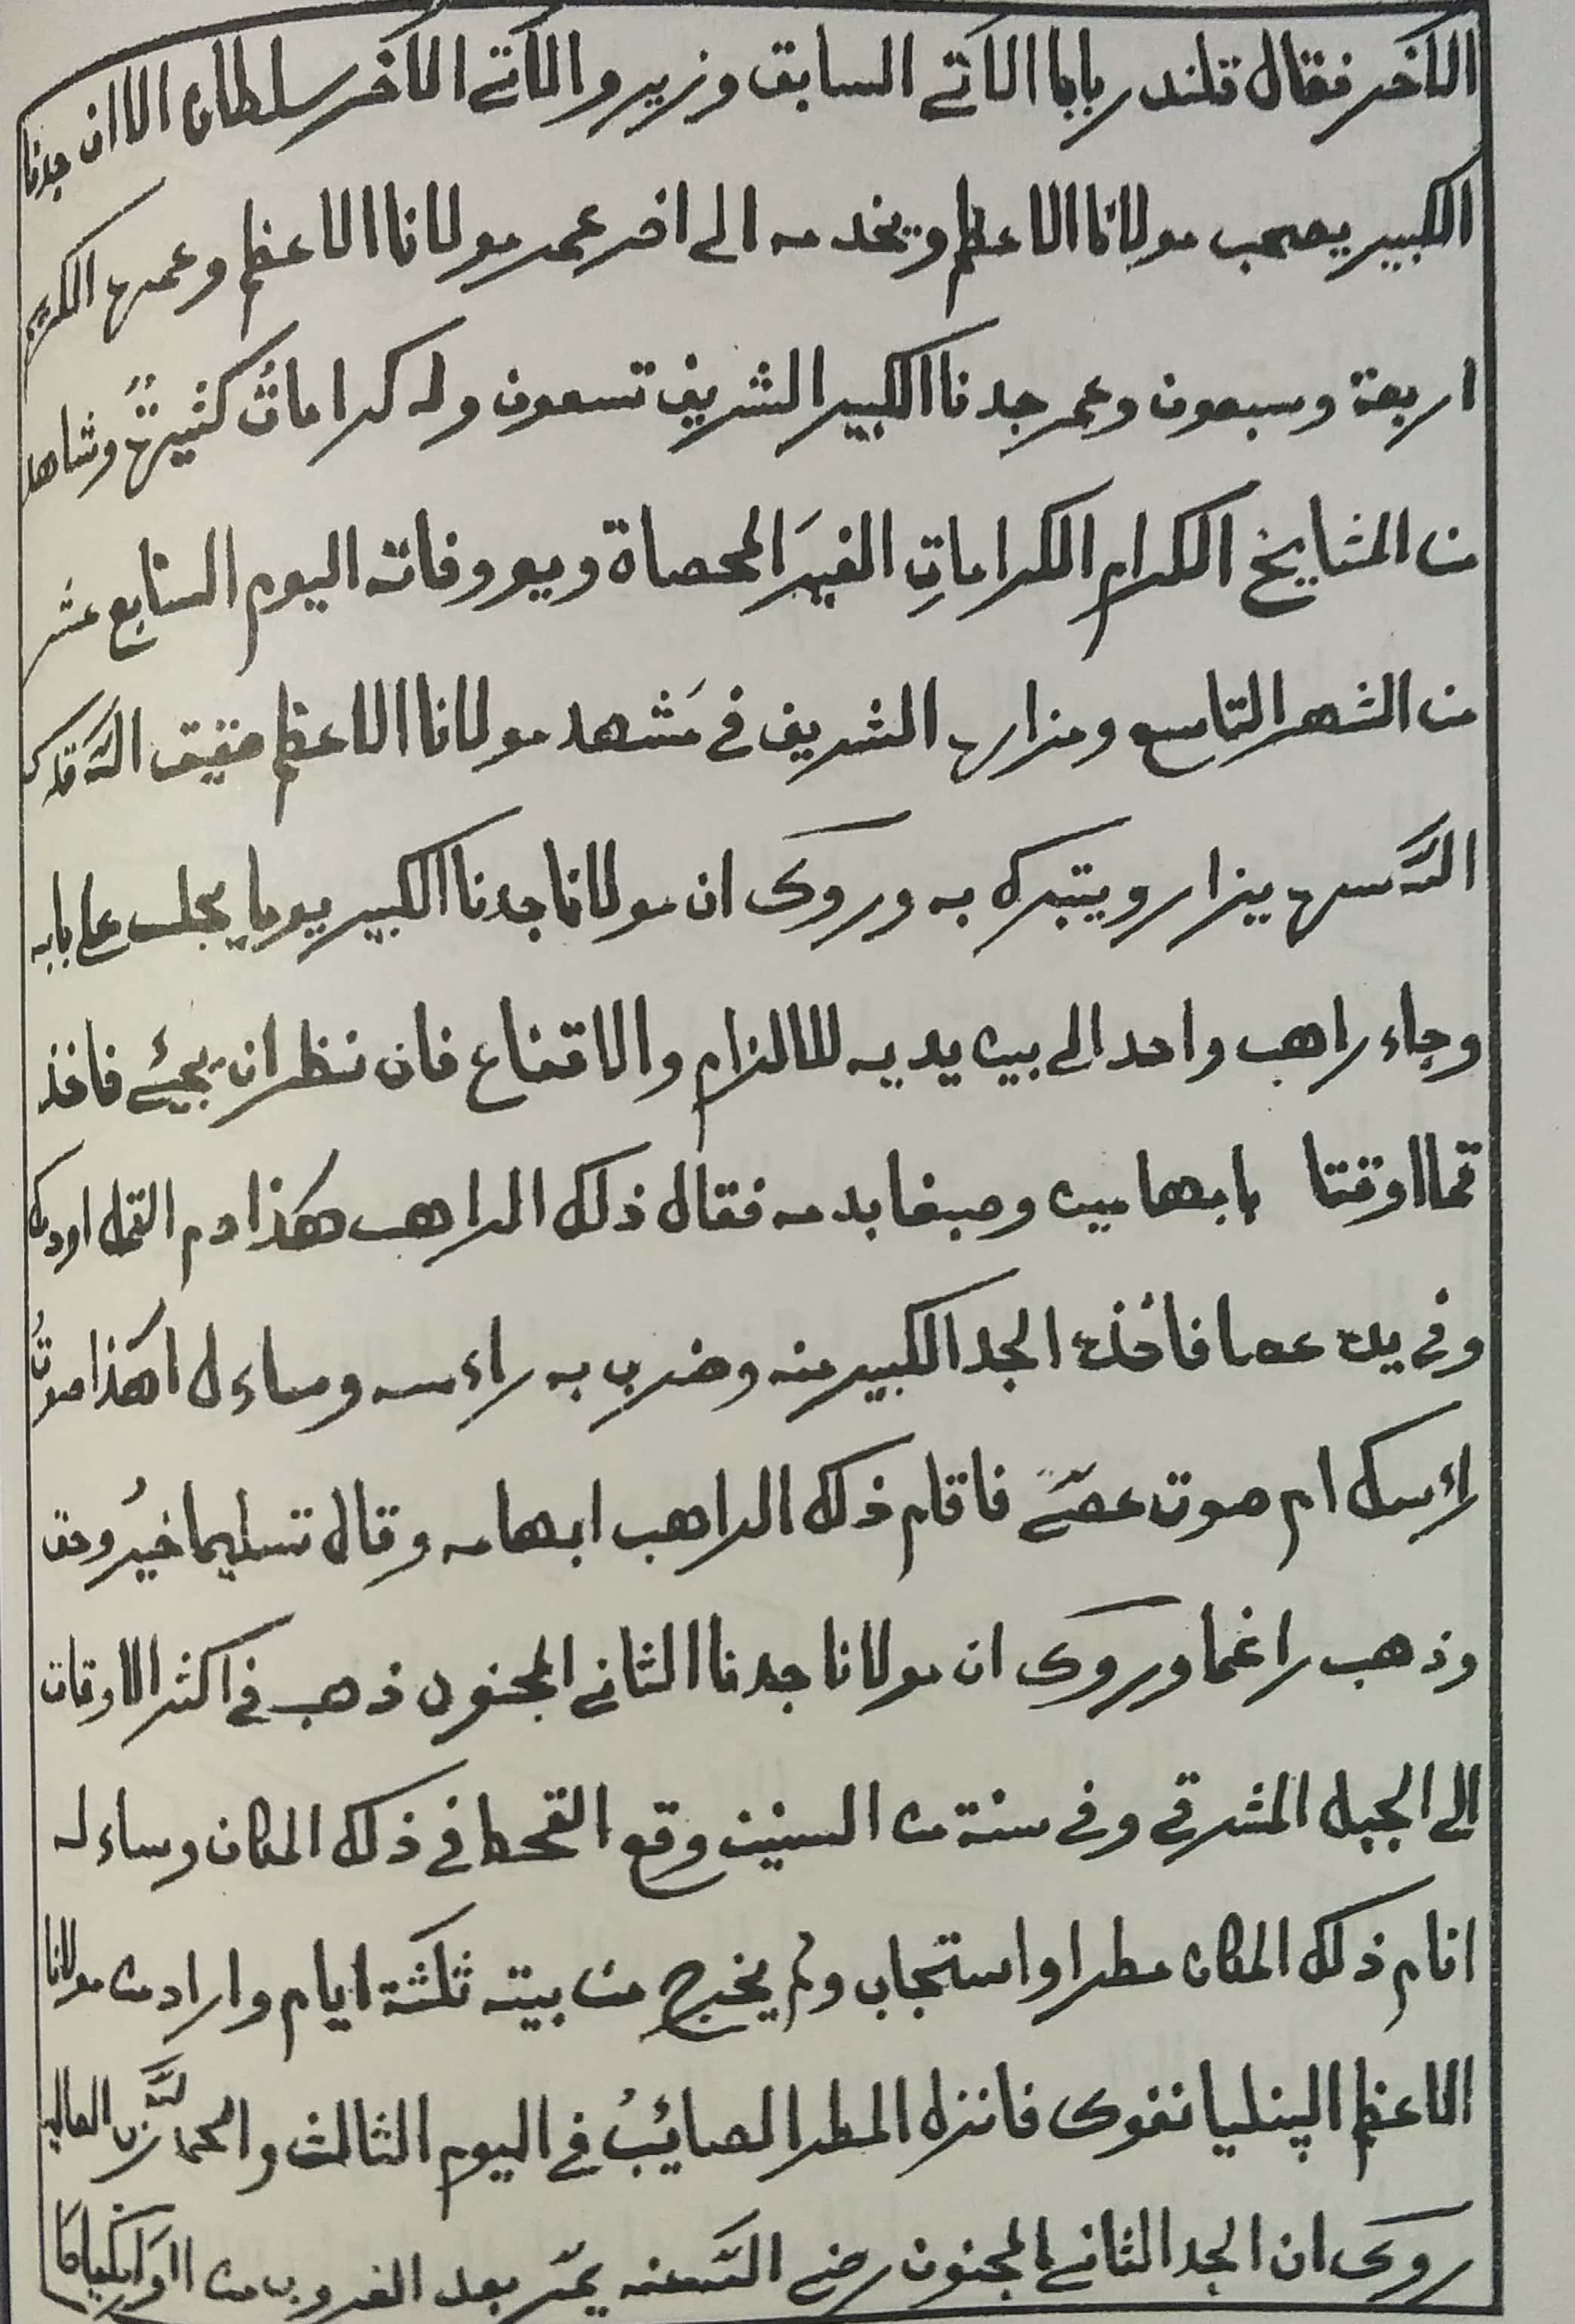 الآخر فقال قلندر بابا الآتى السابق وزير والآتى الآخر سلطان الا ان جدنا
الكبير يصحب مولانا الاعظم ويخدمه الى اخر عمر مولانا الاعظم وعمره الكريم
اربعة وسبعون وعمر جدنا الكبير الشريف تسعون وله كراماتٌ كثيرةٌ وشاهد
من المشايخ الكرام الكراماتِ الغيرَ المحصاة ويوم وفاته اليوم السابع عشر
من الشهر التاسع ومزاره الشريف فى مَشهد مولانا الاعظم ضيف الله قدس
الله سره يزار ويتبرك به وروى ان مولانا جدنا الكبير يوما يجلس على بابه
وجاء راهب واحد الى بين يديه للالزام والاقناع فان نظر ان يجئ فاخذ
قملا اوقتا بابهامين وصبغا بدمه فقال ذلك الراهب هكذا دم القمل اودمك
وفى يده عصا فاخذه الجد الكبير منه وضرب به راءسه وساءل اهكذا صوتُ
راءسك ام صوت عصًى فاقام ذلك الراهب ابهامه وقال تسليما خيرُ وحق
وذهب راغما وروى ان مولانا جدنا الثانى المجنون ذهب فى اكثر الاوقات
الى الجبل المشرقى وفى سنة من السنين وقع القحط فى ذلك المكان وساءله
انام ذلك المكان مطرا واستجاب ولم يخرج من بيته ثلثة ايام واراد من مولانا
الاعظم الپنليانغوى فانزل المطر الصائبُ فى اليوم الثالث والحمد لله رب العالمين
روى ان الجد الثانى المجنون رضى الله عنه يمرّ بعد الغروب من